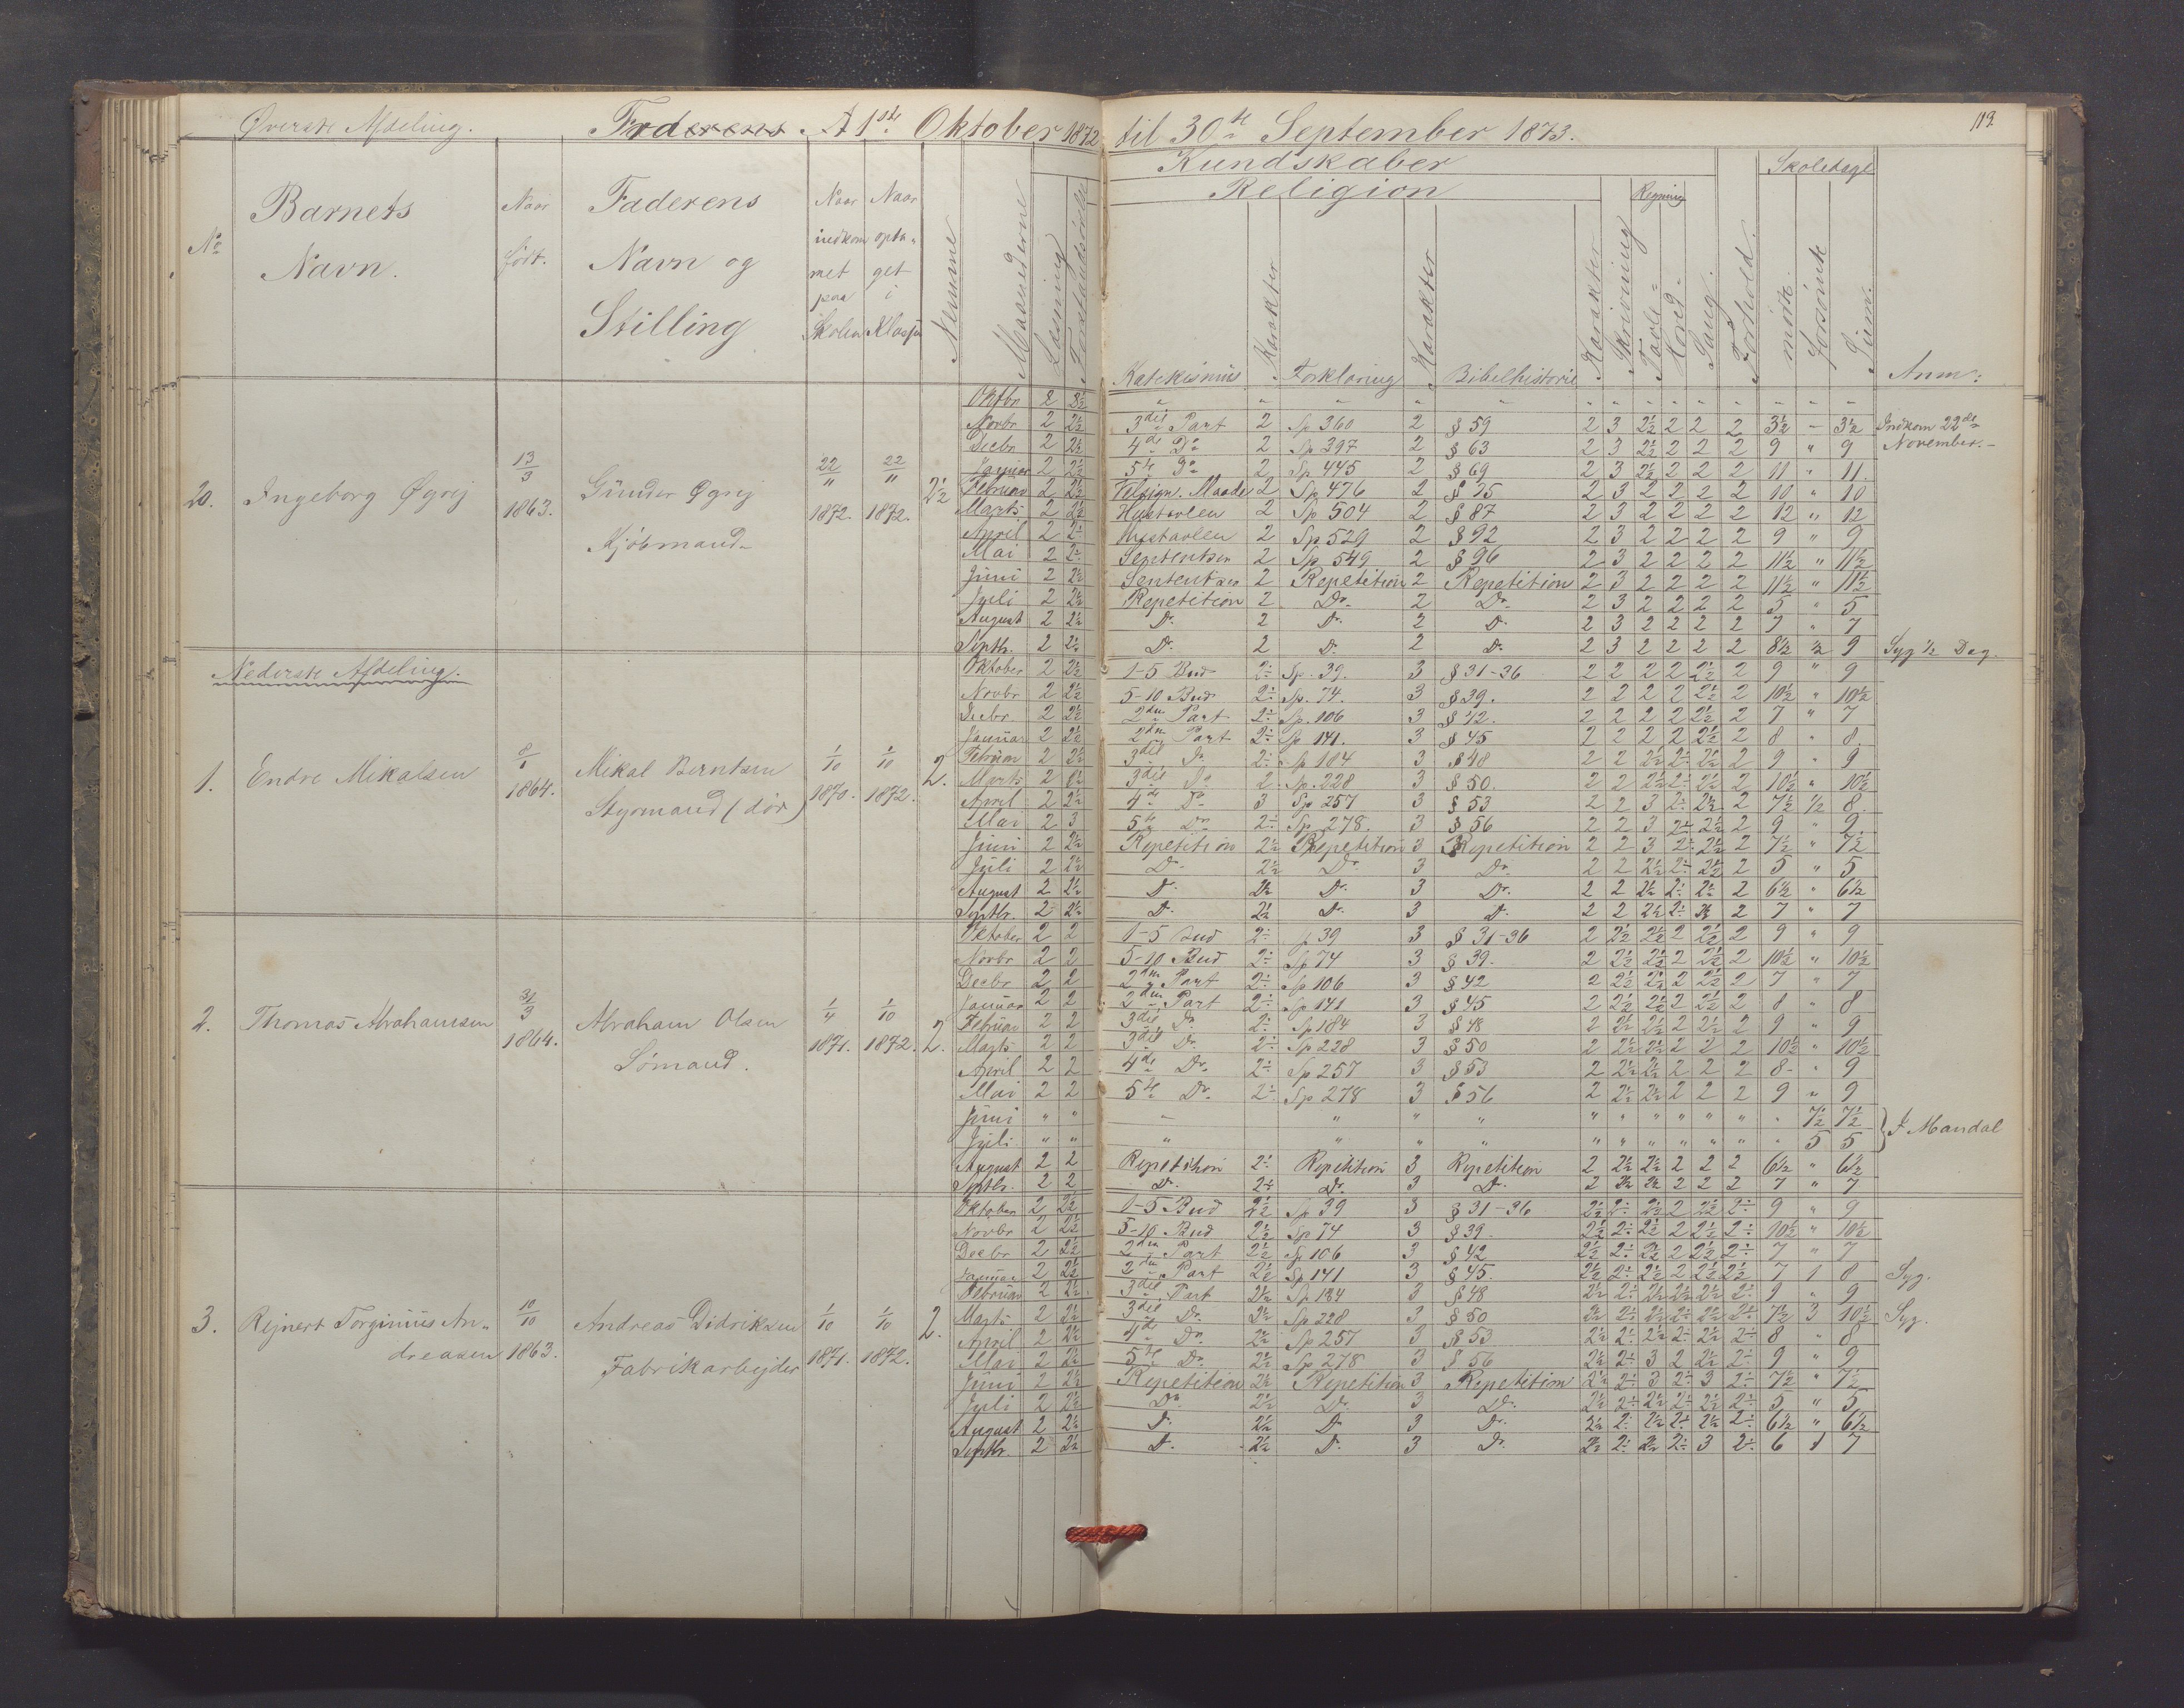 Øverste Afdeling. Faderens A 1ste Oktober 1872 til 30te September 1873. 113
Kundskaber Skoledage
Religion Regning
No Barnets Navn. Naar født. Faderens Navn og Stilling Naar indkommet paa Skolen Naar optaget i Klassen Nemme Maanederne Læsning Forstandsøvelse Katekismus Karakter Forklaring Karakter Bibelhistorie Karakter Skrivning Tavle= Hoved= Sang. Forhold. mødt. forsømt Sum. Anm:
20. Ingeborg Øgrej 13/3 1863. Gunder Øgrej Kjøbmand 22/11 1872. 22/11 1872. 2½
Oktbr 2 2½ " " " " " " " " " " " " " "
Novbr 2 2½ 3die Part 2 Sp 360 2 § 59 2 3 2½ 2 2 2 3½ - 3½ Indkom 22de
Decbr 2 2½ 4de Do 2 Sp 397 2 § 63 2 3 2½ 2 2 2 9 " 9 November.-
Januar 2 2½ 5te Do 2 Sp 445 2 § 69 2 3 2½ 2 2 2 11 " 11.
Februar 2 2½ Velsign. Maade 2 Sp 476 2 § 75 2 3 2 2 2 2 10 " 10
Marts 2 2½ Hustavlen 2 Sp 504 2 § 87 2 3 2 2 2 2 12 " 12
April 2 2÷ Hustavlen 2 Sp 529 2 § 92 2 3 2 2 2 2 9 " 9
Mai 2 2÷ Sententser 2 Sp 549 2 § 96 2 3 2 2 2 2 11½ " 11½
Juni 2 2½ Sententser 2 Repetition 2 Repetition 2 3 2 2 2 2 11½ " 11½
Juli 2 2½ Repetition 2 Do. 2 Do. 2 3 2 2 2 2 5 " 5
August 2 2½ Do. 2 Do. 2 Do. 2 3 2 2 2 2 7 " 7
Septbr. 2 2÷ Do. 2 Do. 2 Do. 2 3 2 2 2 2 8½ ½ 9 Syg ½ Dag.
Nederste Afdeling.
1. Endre Mikalsen 8/1 1864. Mikal Berntsen Styrmand (død) 1/10 1870. 1/10 1872. 2.
Oktober 2 2½ 1-5 Bud 2÷ Sp. 39. 3 § 31-36 2 2 2 2 2½ 2 9 " 9
Novbr 2 2½ 5-10 Bud 2÷ Sp. 74. 3 § 39. 2 2 2 2 2½ 2 10½ " 10½
Decbr. 2 2½ 2den Part 2÷ Sp. 106 3 § 42. 2 2 2 2 2½ 2 7 " 7
Januar 2 2½ 2den Part 2÷ Sp 141. 3 § 45 2 2 2 2 2½ 2 8 " 8.
Februar 2 2½ 3die Do. 2÷ Sp 184 3 § 48 2 2 2½ 2÷ 2½ 2 9 " 9
Marts 2 2½ 3die Do 2÷ Sp. 228 3 § 50. 2 2 2½ 2÷ 2½ 2 10½ " 10½
April 2 2½ 4de Do 3 Sp 257 3 § 53 2 2 3 2÷ 2½ 2 7½ ½ 8.
Mai 2 3 5te Do. 2÷ Sp 278. 3 § 56 2 2 3 2÷ 2½ 2 9 " 9
Juni 2 2½ Repetition 2½ Repetition 3 Repetition 2 2 3 2÷ 2½ 2 7½ " 7½
Juli 2 2½ Do. 2½ Do. 3 Do. 2 2 2½ 2÷ 2½ 2 5 " 5
August 2 2½ Do. 2½ Do. 3 Do. 2 2 2½ 2÷ 2½ 2 6½ " 6½
Septbr. 2 2½ Do. 2½ Do. 3 Do. 2 2 2½ 2÷ 2½ 2 7 " 7
2. Thomas Abrahamsen 31/3 1864. Abraham Olsen Sømand. 1/4 1871. 1/10 1872. 2.
Oktober 2 2 1-5 Bud 2÷ Sp 39 3 § 31-36 2 2½ 2½ 2 2½ 2 9 " 9
Novbr 2 2 5-10 Bud 2÷ Sp 74 3 § 39. 2 2½ 2½ 2 2½ 2 10½ " 10½
Decbr 2 2 2den Part 2÷ Sp 106 3 § 42 2 2½ 2½ 2 2½ 2 7 " 7
Januar 2 2 2den Part 2÷ Sp 141 3 § 45 2 2½ 2½ 2 2½ 2 8 " 8
Februar 2 2 3die Do. 2÷ Sp 184 3 § 48 2 2½ 2½ 2 2½ 2 9 " 9
Marts 2 2 3die Do. 2÷ Sp 228 3 § 50 2 2½ 2½ 2 2 2 10½ " 10½
April 2 2 4de Do. 2÷ Sp 257 3 § 53 2 2½ 2½ 2 2 2 8- " 9
Mai 2 2 5te Do. 2÷ Sp 278 3 § 56 2 2½ 2½ 2 2 2 9 " 9
Juni " " " " " " " " " " " " " 7½ 7½ } I Mandal
Juli " " " " " " " " " " " " " 5 5
August 2 2 Repetition 2÷ Repetition 3 Repetition 2 2½ 2½ 2 2 2 6½ " 6½
Septbr. 2 2 Do. 2÷ Do. 3 Do. 2 2½ 2½ 2 2 2 7 " 7
3. Rejnert Torginius Andreasen 10/10 1863. Andreas Didriksen Fabrikarbejder 1/10 1871. 1/10 1872. 2.
Oktober 2 2½ 1-5 Bud 2½ Sp 39 3 § 31-36 2½ 2÷ 2½ 2 2½ 2÷ 9 " 9
Novbr 2 2½ 5-10 Bud 2½ Sp 74 3 § 39. 2½ 2÷ 2½ 2 2½ 2÷ 10½ " 10½
Decbr 2 2½ 2den Part 2½ Sp 106 3 § 42 2½ 2÷ 2½ 2 2½ 2÷ 7 " 7
Januar 2 2½ 2den Part 2½ Sp 141 3 § 45. 2½ 2÷ 2½ 2 2½ 2½ 7 1 8 Syg.
Februar 2 2½ 3die Part 2½ Sp 184 3 § 48 2½ 2÷ 2½ 2½ 2½ 2÷ 9 " 9
Marts 2 2½ 3die Do. 2½ Sp 228 3 § 50 2½ 2÷ 2½ 2÷ 2½ 2÷ 7½ 3 10½ Syg.
April 2 2½ 4de Do. 2½ Sp 257 3 § 53 2½ 2÷ 2½ 2÷ 2½ 2÷ 8 " 8
Mai 2 2½ 5te Do. 2½ Sp 278 3 § 56 2½ 2÷ 3 2 2½ 2÷ 9 " 9
Juni 2 2½ Repetition 2½ Repetition 3 Repetition 2½ 2÷ 3 2÷ 3 2÷ 7½ " 7½
Juli 2 2½ Do. 2½ Do. 3 Do. 2½ 2÷ 2½ 2÷ 2½ 2÷ 5 " 5
August 2 2½ Do. 2½ Do 3 Do. 2½ 2÷ 2½ 2÷ 2½ 2÷ 6½ " 6½
Septbr. 2 2½ Do. 2½ Do. 3 Do. 2½ 2÷ 2½ 2÷ 3 2÷ 6 1 7